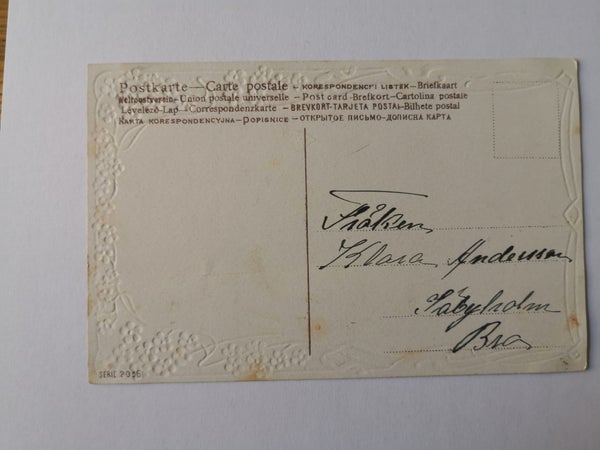 Postkarte — Carte postale - KORESPONDENČNI LISTEK - Briefkaart
Weltpostverein - Union postale universelle - Postcard - Brefkort - Cartolina postale
Levelező-Lap - Correspondenzkarte - BREVKORT - TARJETA POSTAL - Bilhete postal
KARTA KORESPONDENCYJNA - DOPISNICE - ОТКРЫТОЕ ПИСЬМО - ДОПИСНА КАРТА
Fröken
Klara Andersson
Säbyholm
Bro